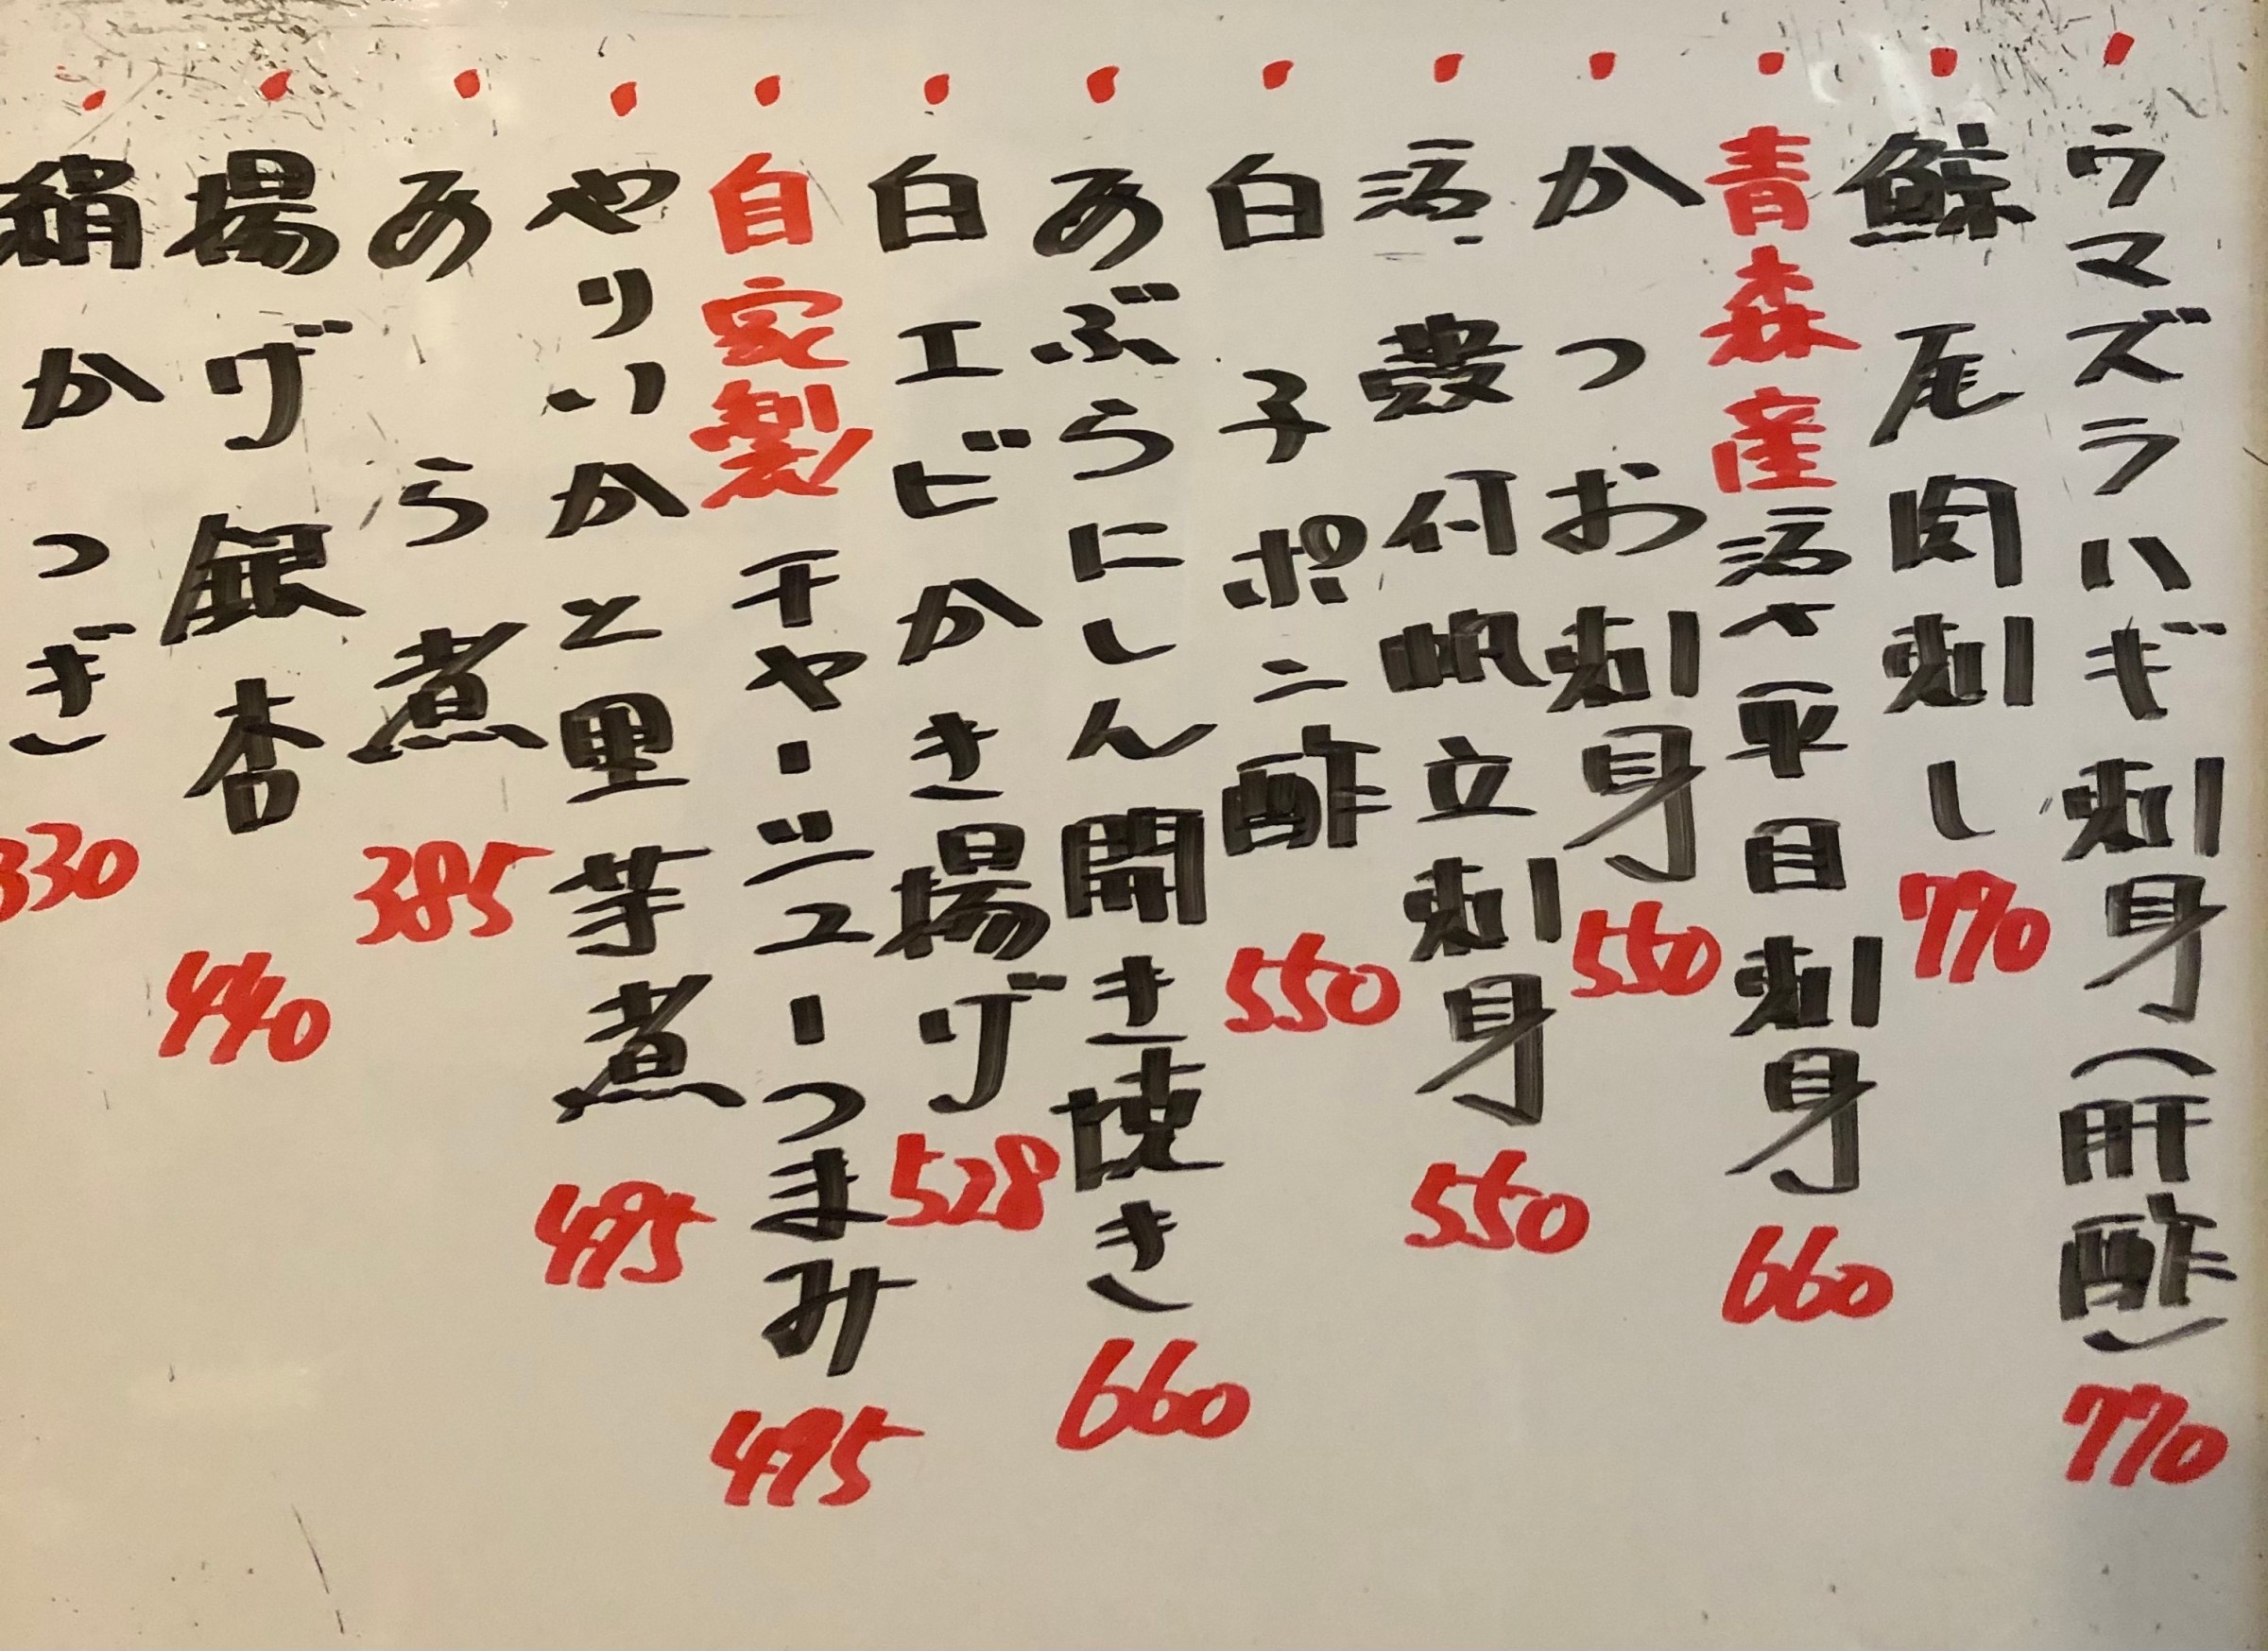 ・ウマズラハギ刺身(肝酢) 770
・鯨尾肉刺し 770
・青森産活〆平目刺身 660
・かつお刺身 550
・活殻付帆立刺身 550
・白子ポン酢 550
・あぶらにしん開き焼き 660
・白エビかき揚げ 528
・自家製チャーシューつまみ 495
・やりいかと里芋煮 495
・あら煮 385
・揚げ銀杏 440
・絹かつぎ 330